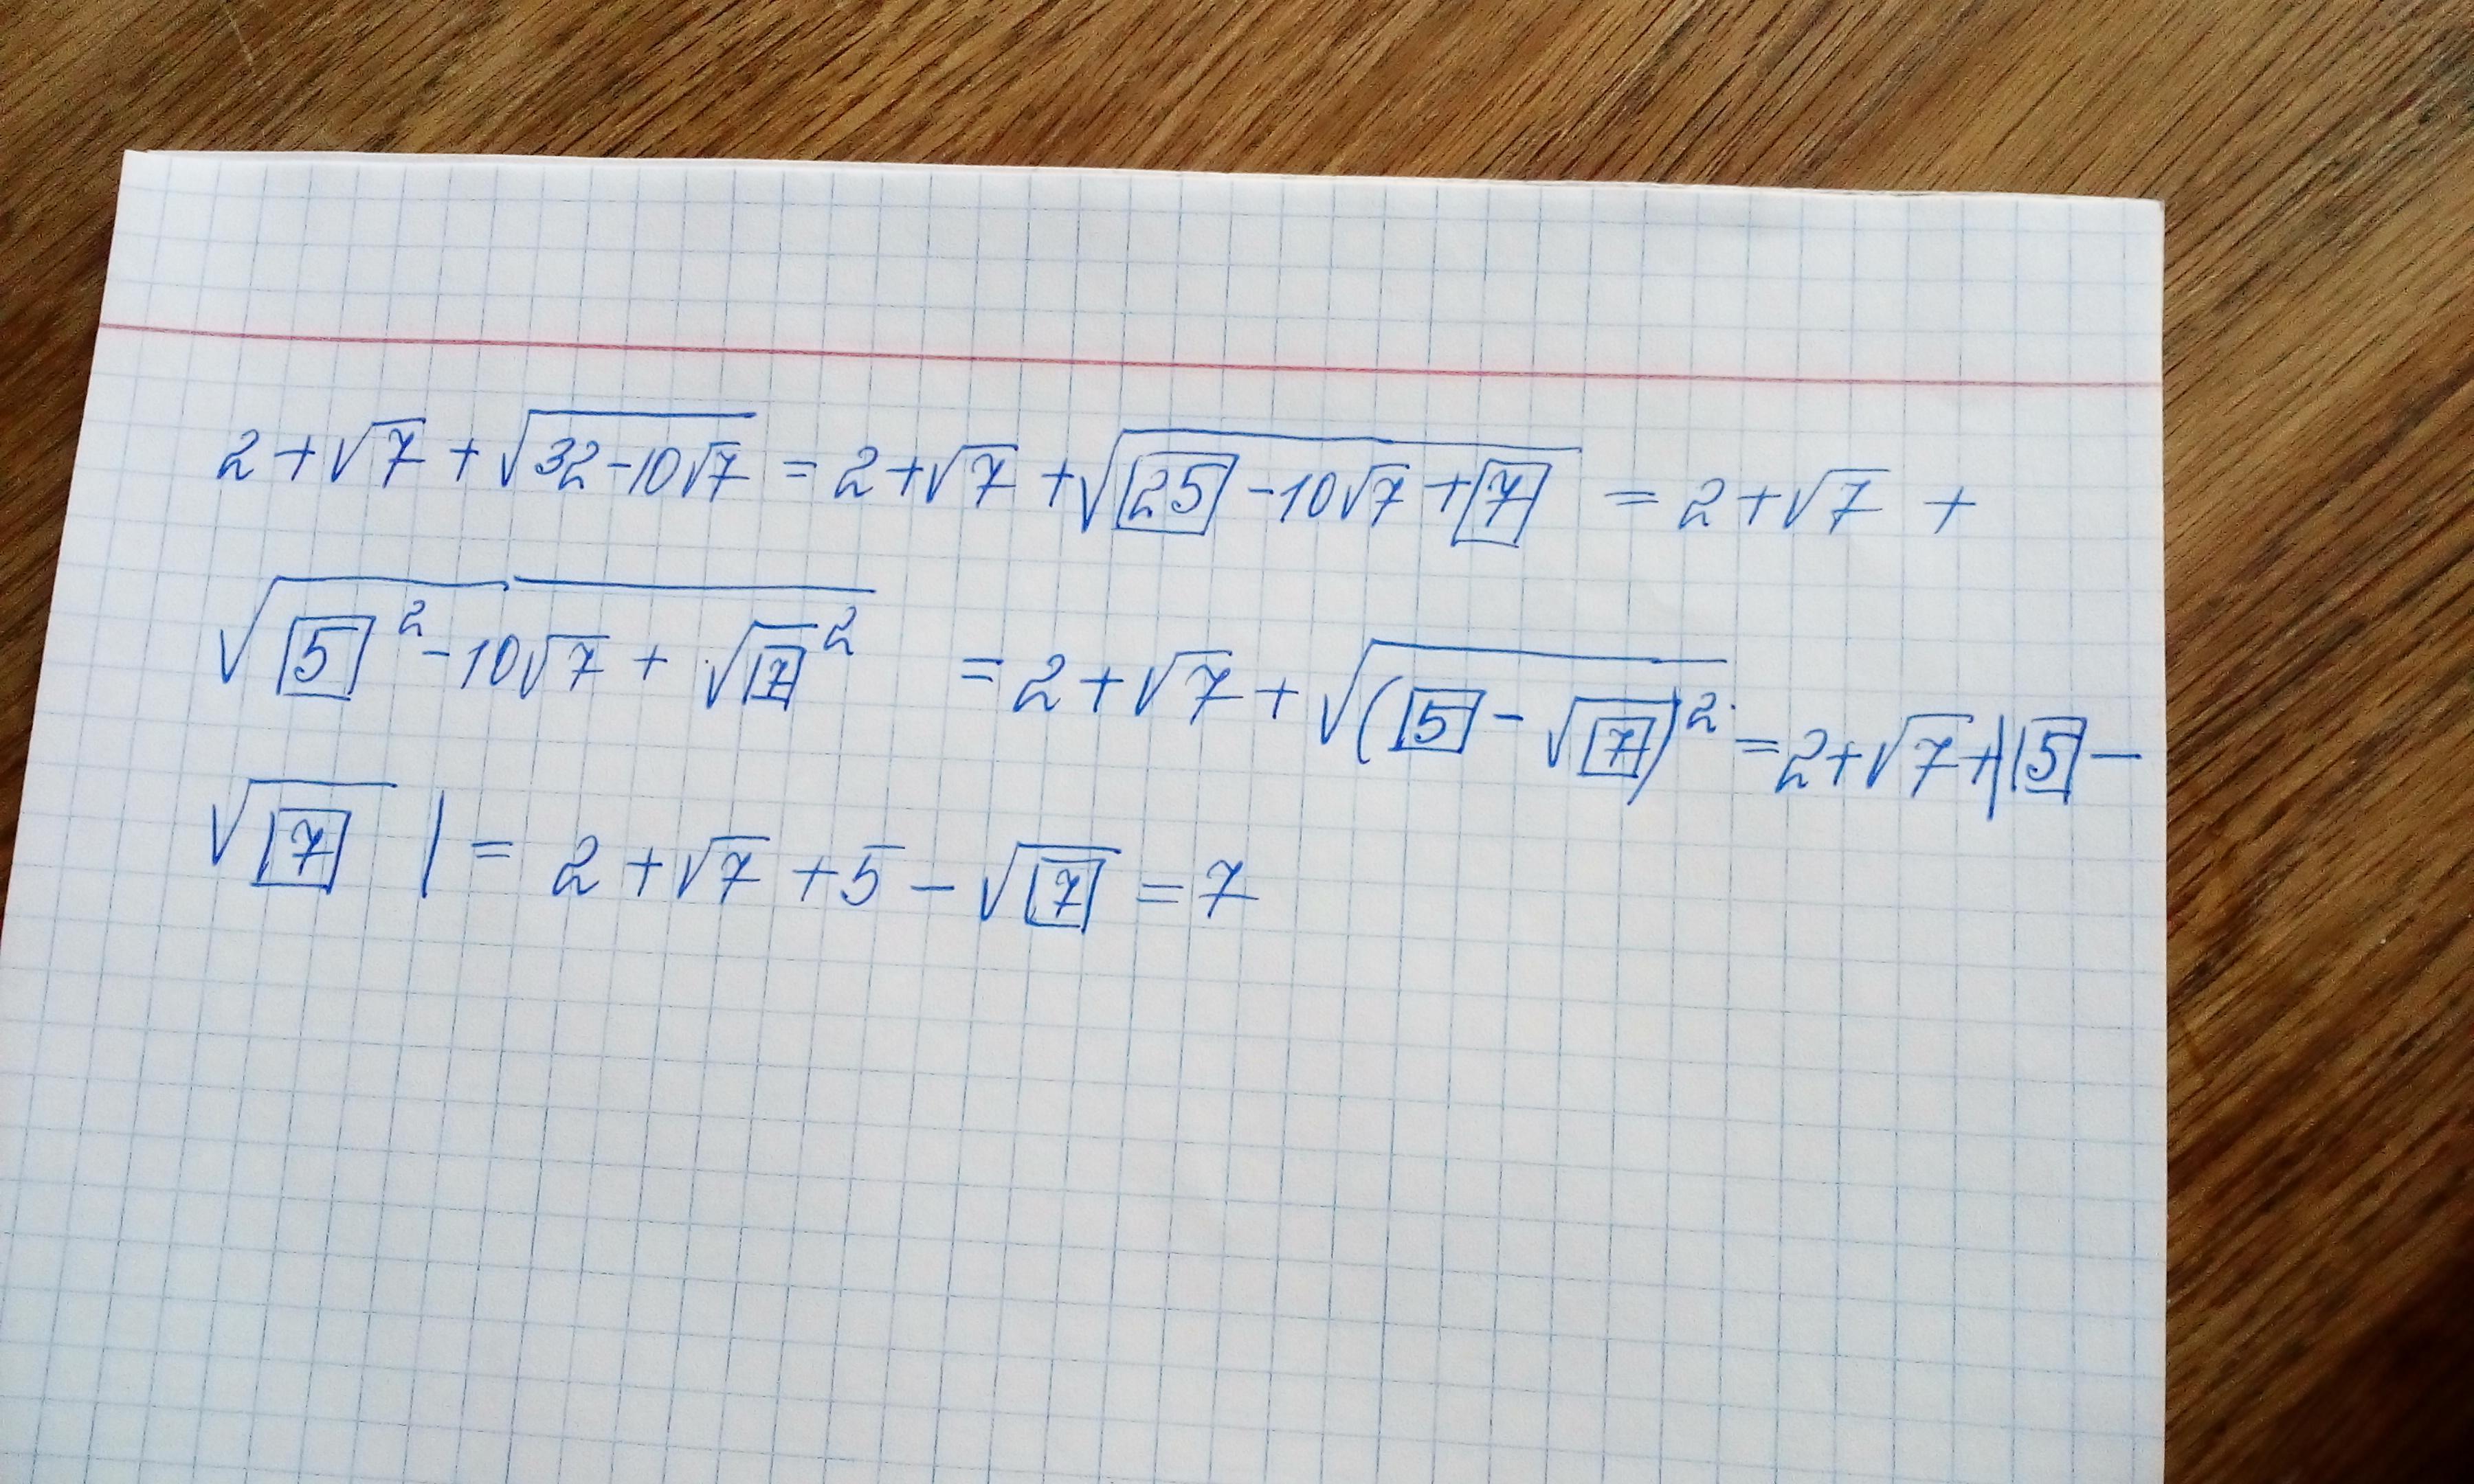 2+√7+√(32-10√7) = 2+√7+√(25-10√7+7) = 2+√7+
√(5²-10√7+√7²) = 2+√7+√((5-√7)²) = 2+√7+|5-
√7| = 2+√7+5-√7 = 7